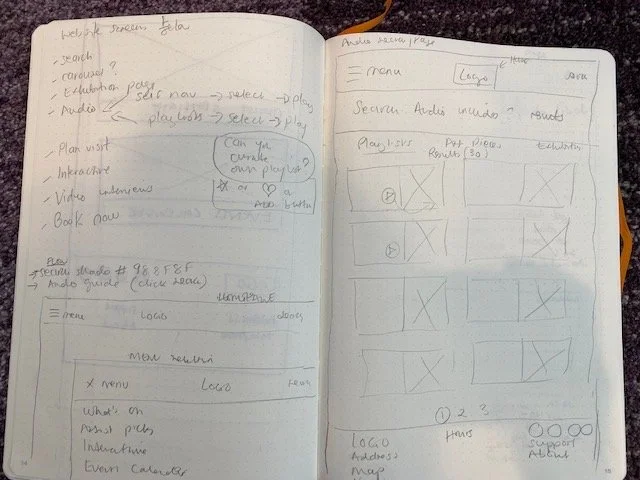 website screens below
- search
- carousel?
- Exhibition page
- Audio
self nav → select → play
playlists → select → play
- Plan visit
- Interactive
- Video interviews
- Book now
Can you
curate
own playlist?
or ♡ a
Add button
FLOW
→ Search #988F8F
→ Audio guide (click
HOMEPAGE
menu LOGO
Menu
X menu LOGO
What's on
Artist picks
Interactive
Event Calendar
Audio page
Home
menu Logo
Search Audio results
Playlists Art Pieces Exhibition
Results (30)
1 2 3
LOGO Hours Support
Address About
Map